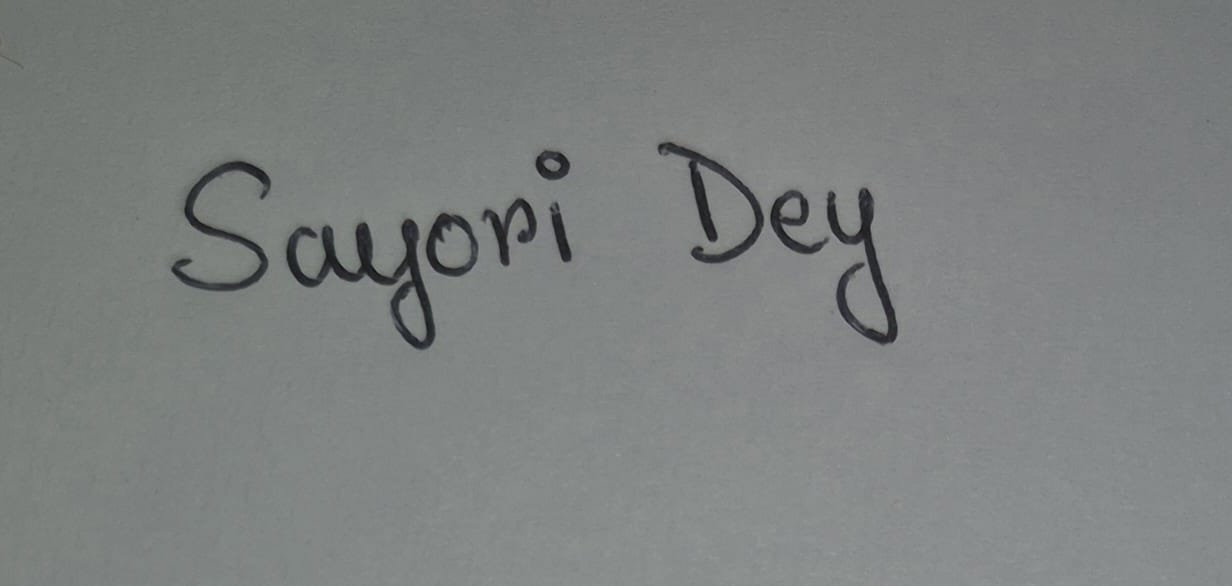 Sayori Dey